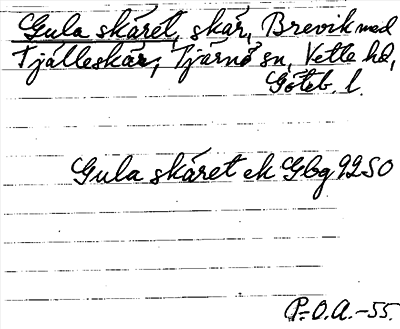 Gula skäret, skär, Brevik med
Tjälleskär, Tjärnö sn, Vette hd,
Göteb. l.
Gula skäret ek Gbg 99 SO
P.O.A.-55.